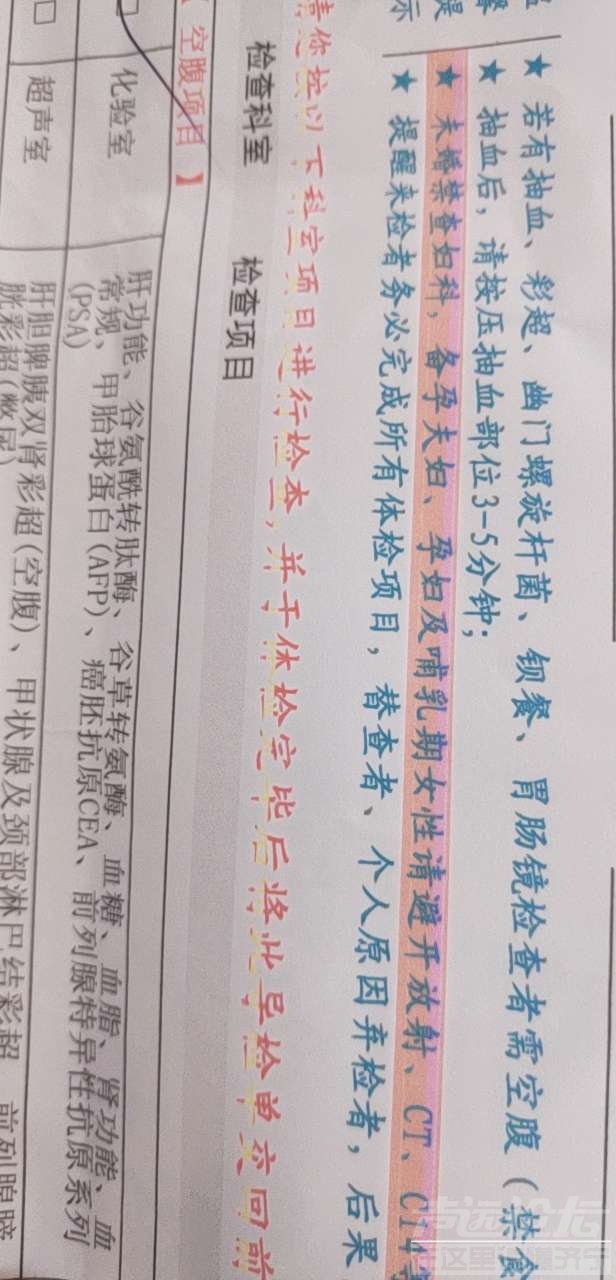 示
★ 若有抽血、彩超、幽门螺旋杆菌、钡餐、胃肠镜检查者需空腹(禁食
★ 抽血后,请按压抽血部位3-5分钟;
★ 未婚禁查妇科,备孕夫妇、孕妇及哺乳期女性请避开放射、CT、C14等
★ 提醒来检者务必完成所有体检项目,替查者、个人原因弃检者,后果
请您按以下科室项目进行检查,并于体检完毕后将此导检单交回前
检查科室 检查项目
【空腹项目】
□ 化验室 肝功能、谷氨酰转肽酶、谷草转氨酶、血糖、血脂、肾功能、血
常规、甲胎球蛋白(AFP)、癌胚抗原CEA、前列腺特异性抗原系列
(PSA)
□ 超声室 肝胆脾胰双肾彩超(空腹)、甲状腺及颈部淋巴结彩超、前列腺膀
胱彩超(憋尿)